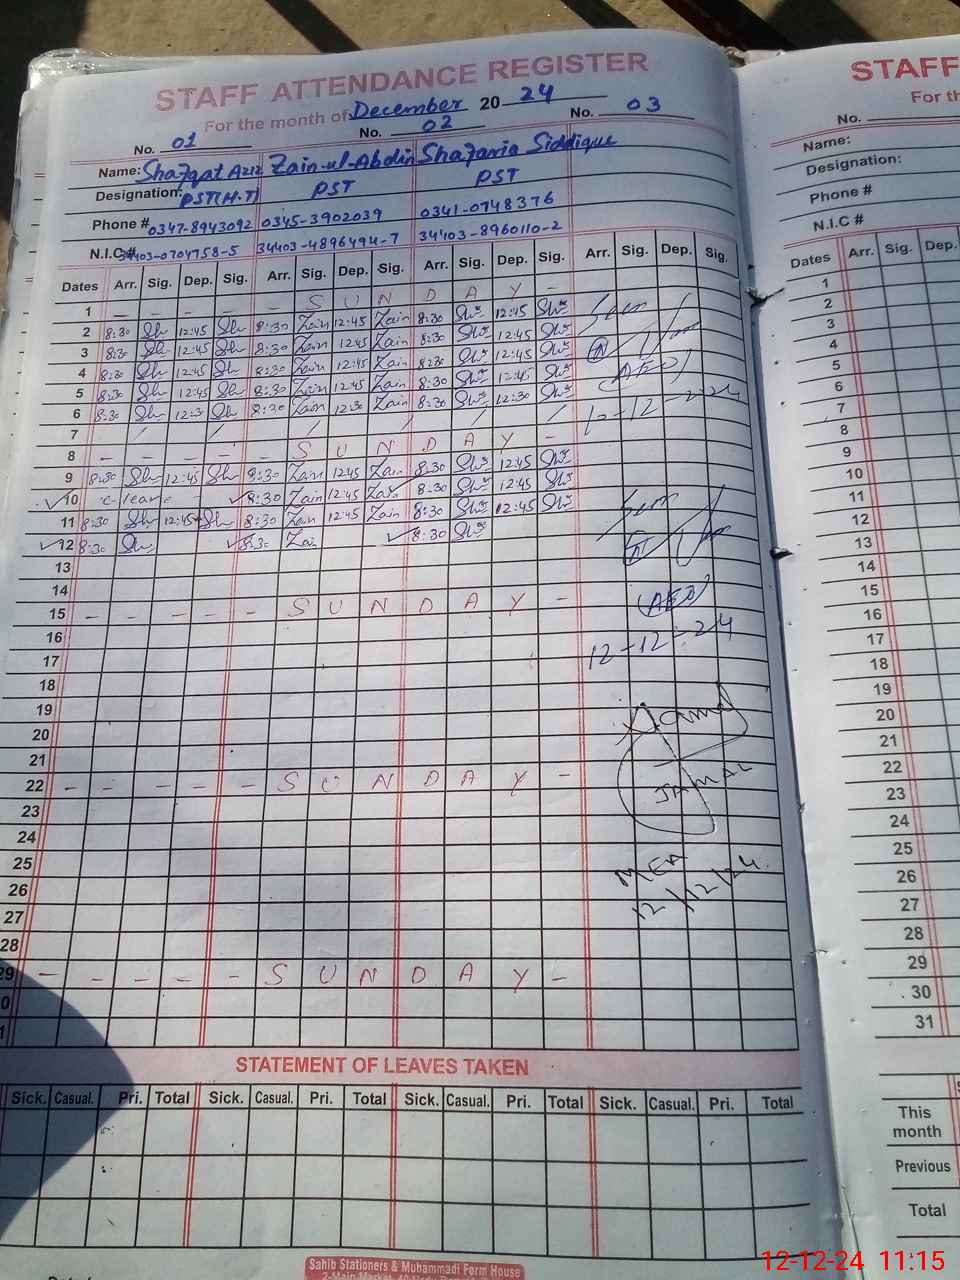 STAFF ATTENDANCE REGISTER
For the month of December 2024
No. 01 No. 02 No. 03
Name: Shafqat Aziz Zain-ul-Abdin Shazania Siddique
Designation: PST(H.T) PST PST
Phone # 0347-8943092 0345-3902039 0341-0748376
N.I.C# 34403-0704758-5 34403-4896494-7 34403-8960110-2
Dates Arr. Sig. Dep. Sig. Arr. Sig. Dep. Sig. Arr. Sig. Dep. Sig. Arr. Sig. Dep. Sig.
1 — — — — — S U N D A Y -
2 8:30 Sh 12:45 Sh 8:30 Zain 12:45 Zain 8:30 12:45
3 8:30 Sh 12:45 Sh 8:30 Zain 12:45 Zain 8:30 12:45
4 8:30 Sh 12:45 Sh 8:30 Zain 12:45 Zain 8:30 12:45
5 8:30 Sh 12:45 Sh 8:30 Zain 12:45 Zain 8:30 12:45
6 8:30 Sh 12:30 Sh 8:30 Zain 12:30 Zain 8:30 12:30
7 / / / / / /
8 - - - - - S U N D A Y -
9 8:30 Sh 12:45 Sh 8:30 Zain 12:45 Zain 8:30 12:45
10 C-leave 8:30 Zain 12:45 Zain 8:30 12:45
11 8:30 Sh 12:45 Sh 8:30 Zain 12:45 Zain 8:30 12:45
12 8:30 Sh 8:30 Zain 8:30
13
14
15 - - - - - S U N D A Y -
16
17
18
19
20
21
22 - - - - - S U N D A Y -
23
24
25
26
27
28
29 - - - - - S U N D A Y -
0
1
Seen
(AEO)
10-12-2024
Seen
(AEO)
12-12-24
JAMAL
MEA
12/12/24.
STATEMENT OF LEAVES TAKEN
Sick. Casual. Pri. Total Sick. Casual. Pri. Total Sick. Casual. Pri. Total Sick. Casual. Pri. Total
Sahib Stationers & Muhammadi Form House
STAFF
For th
No.
Name:
Designation:
Phone #
N.I.C #
Dates Arr. Sig. Dep.
1
2
3
4
5
6
7
8
9
10
11
12
13
14
15
16
17
18
19
20
21
22
23
24
25
26
27
28
29
30
31
This month
Previous
Total
12-12-24 11:15